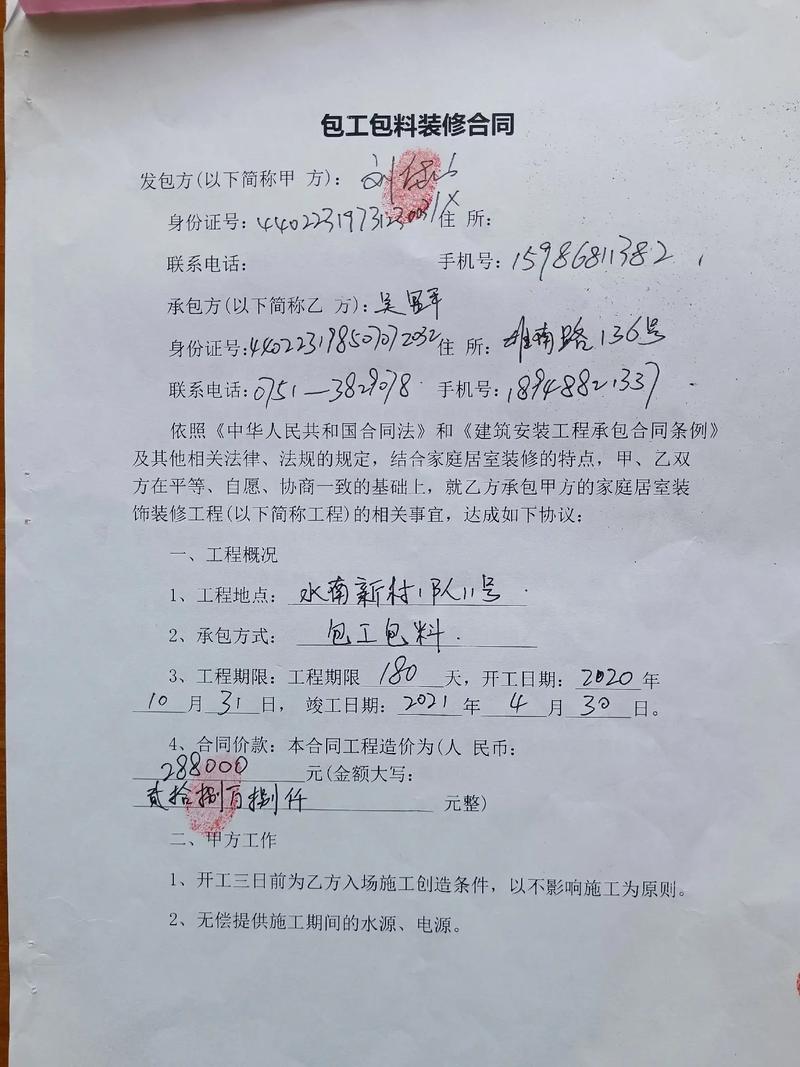 包工包料装修合同
发包方(以下简称甲 方): 刘
身份证号: 住 所:
联系电话: 手机号: 15986811382
承包方(以下简称乙 方): 吴
身份证号:440223198507072032 住 所: 雄南路136号
联系电话:0751—3829078 手机号: 18948821337
依照《中华人民共和国合同法》和《建筑安装工程承包合同条例》
及其他相关法律、法规的规定，结合家庭居室装修的特点，甲、乙双
方在平等、自愿、协商一致的基础上，就乙方承包甲方的家庭居室装
饰装修工程(以下简称工程)的相关事宜，达成如下协议：
一、工程概况
1、工程地点： 水南新村1队11号
2、承包方式： 包工包料.
3、工程期限：工程期限 180 天，开工日期：2020 年
10 月 31 日， 竣工日期：2021 年 4 月 30 日。
4、合同价款：本合同工程造价为(人 民币：
288000 元(金额大写：
贰拾捌万捌仟 元整)
二、甲方工作
1、开工三日前为乙方入场施工创造条件，以不影响施工为原则。
2、无偿提供施工期间的水源、电源。